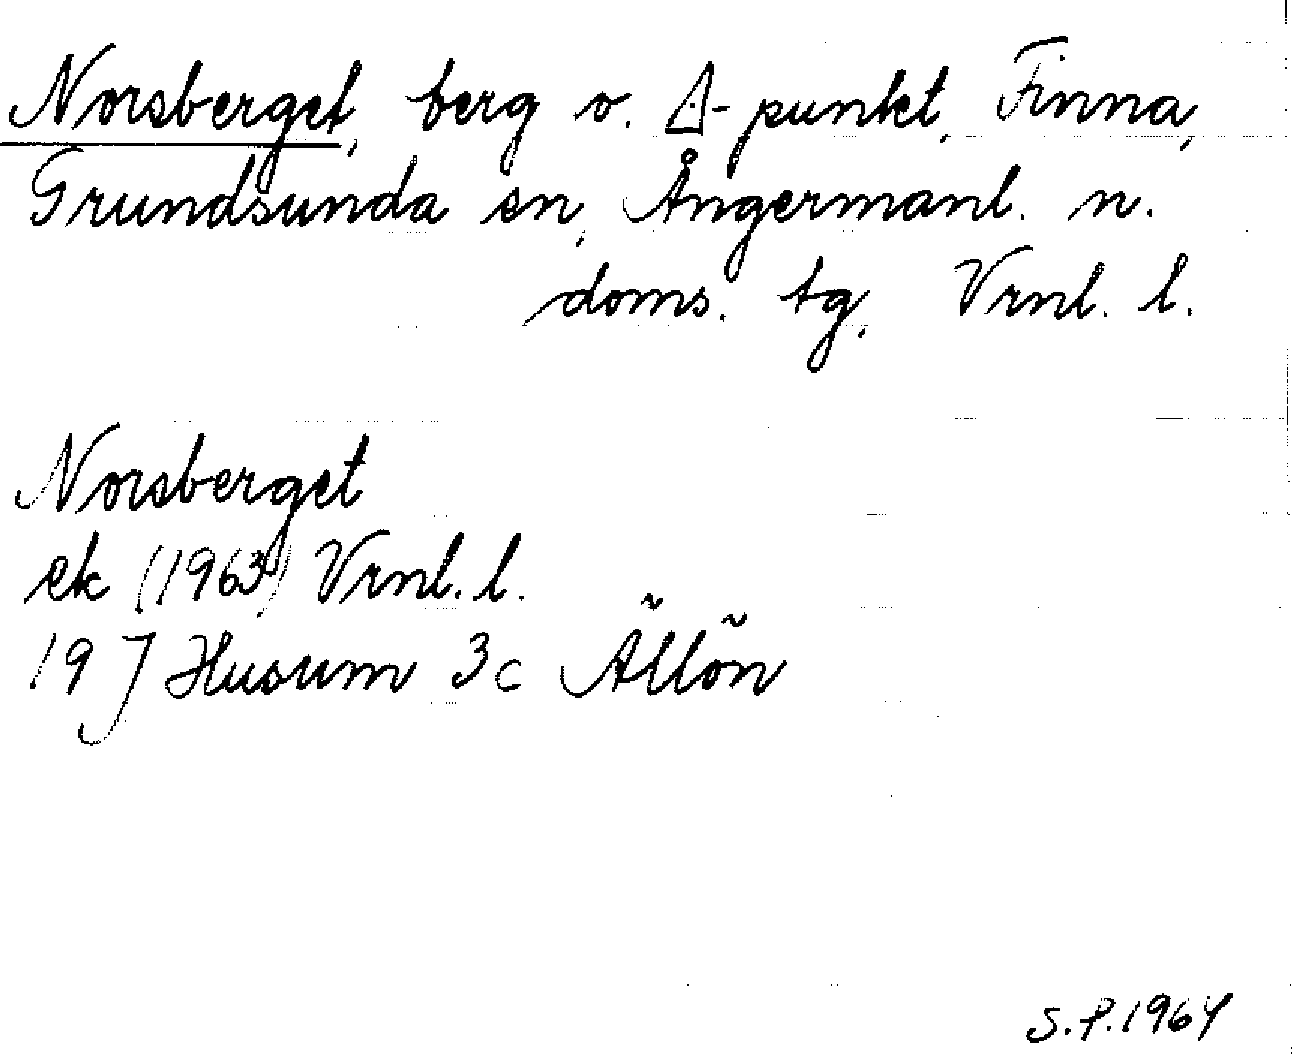 Norsberget, berg o. Δ-punkt, Finna,
Grundsunda sn, Ångermanl. n.
doms. tg, Vrnl. l.
Norsberget
ek (1963) Vrnl. l.
19 J Husum 3c Ällön
S.P. 1964